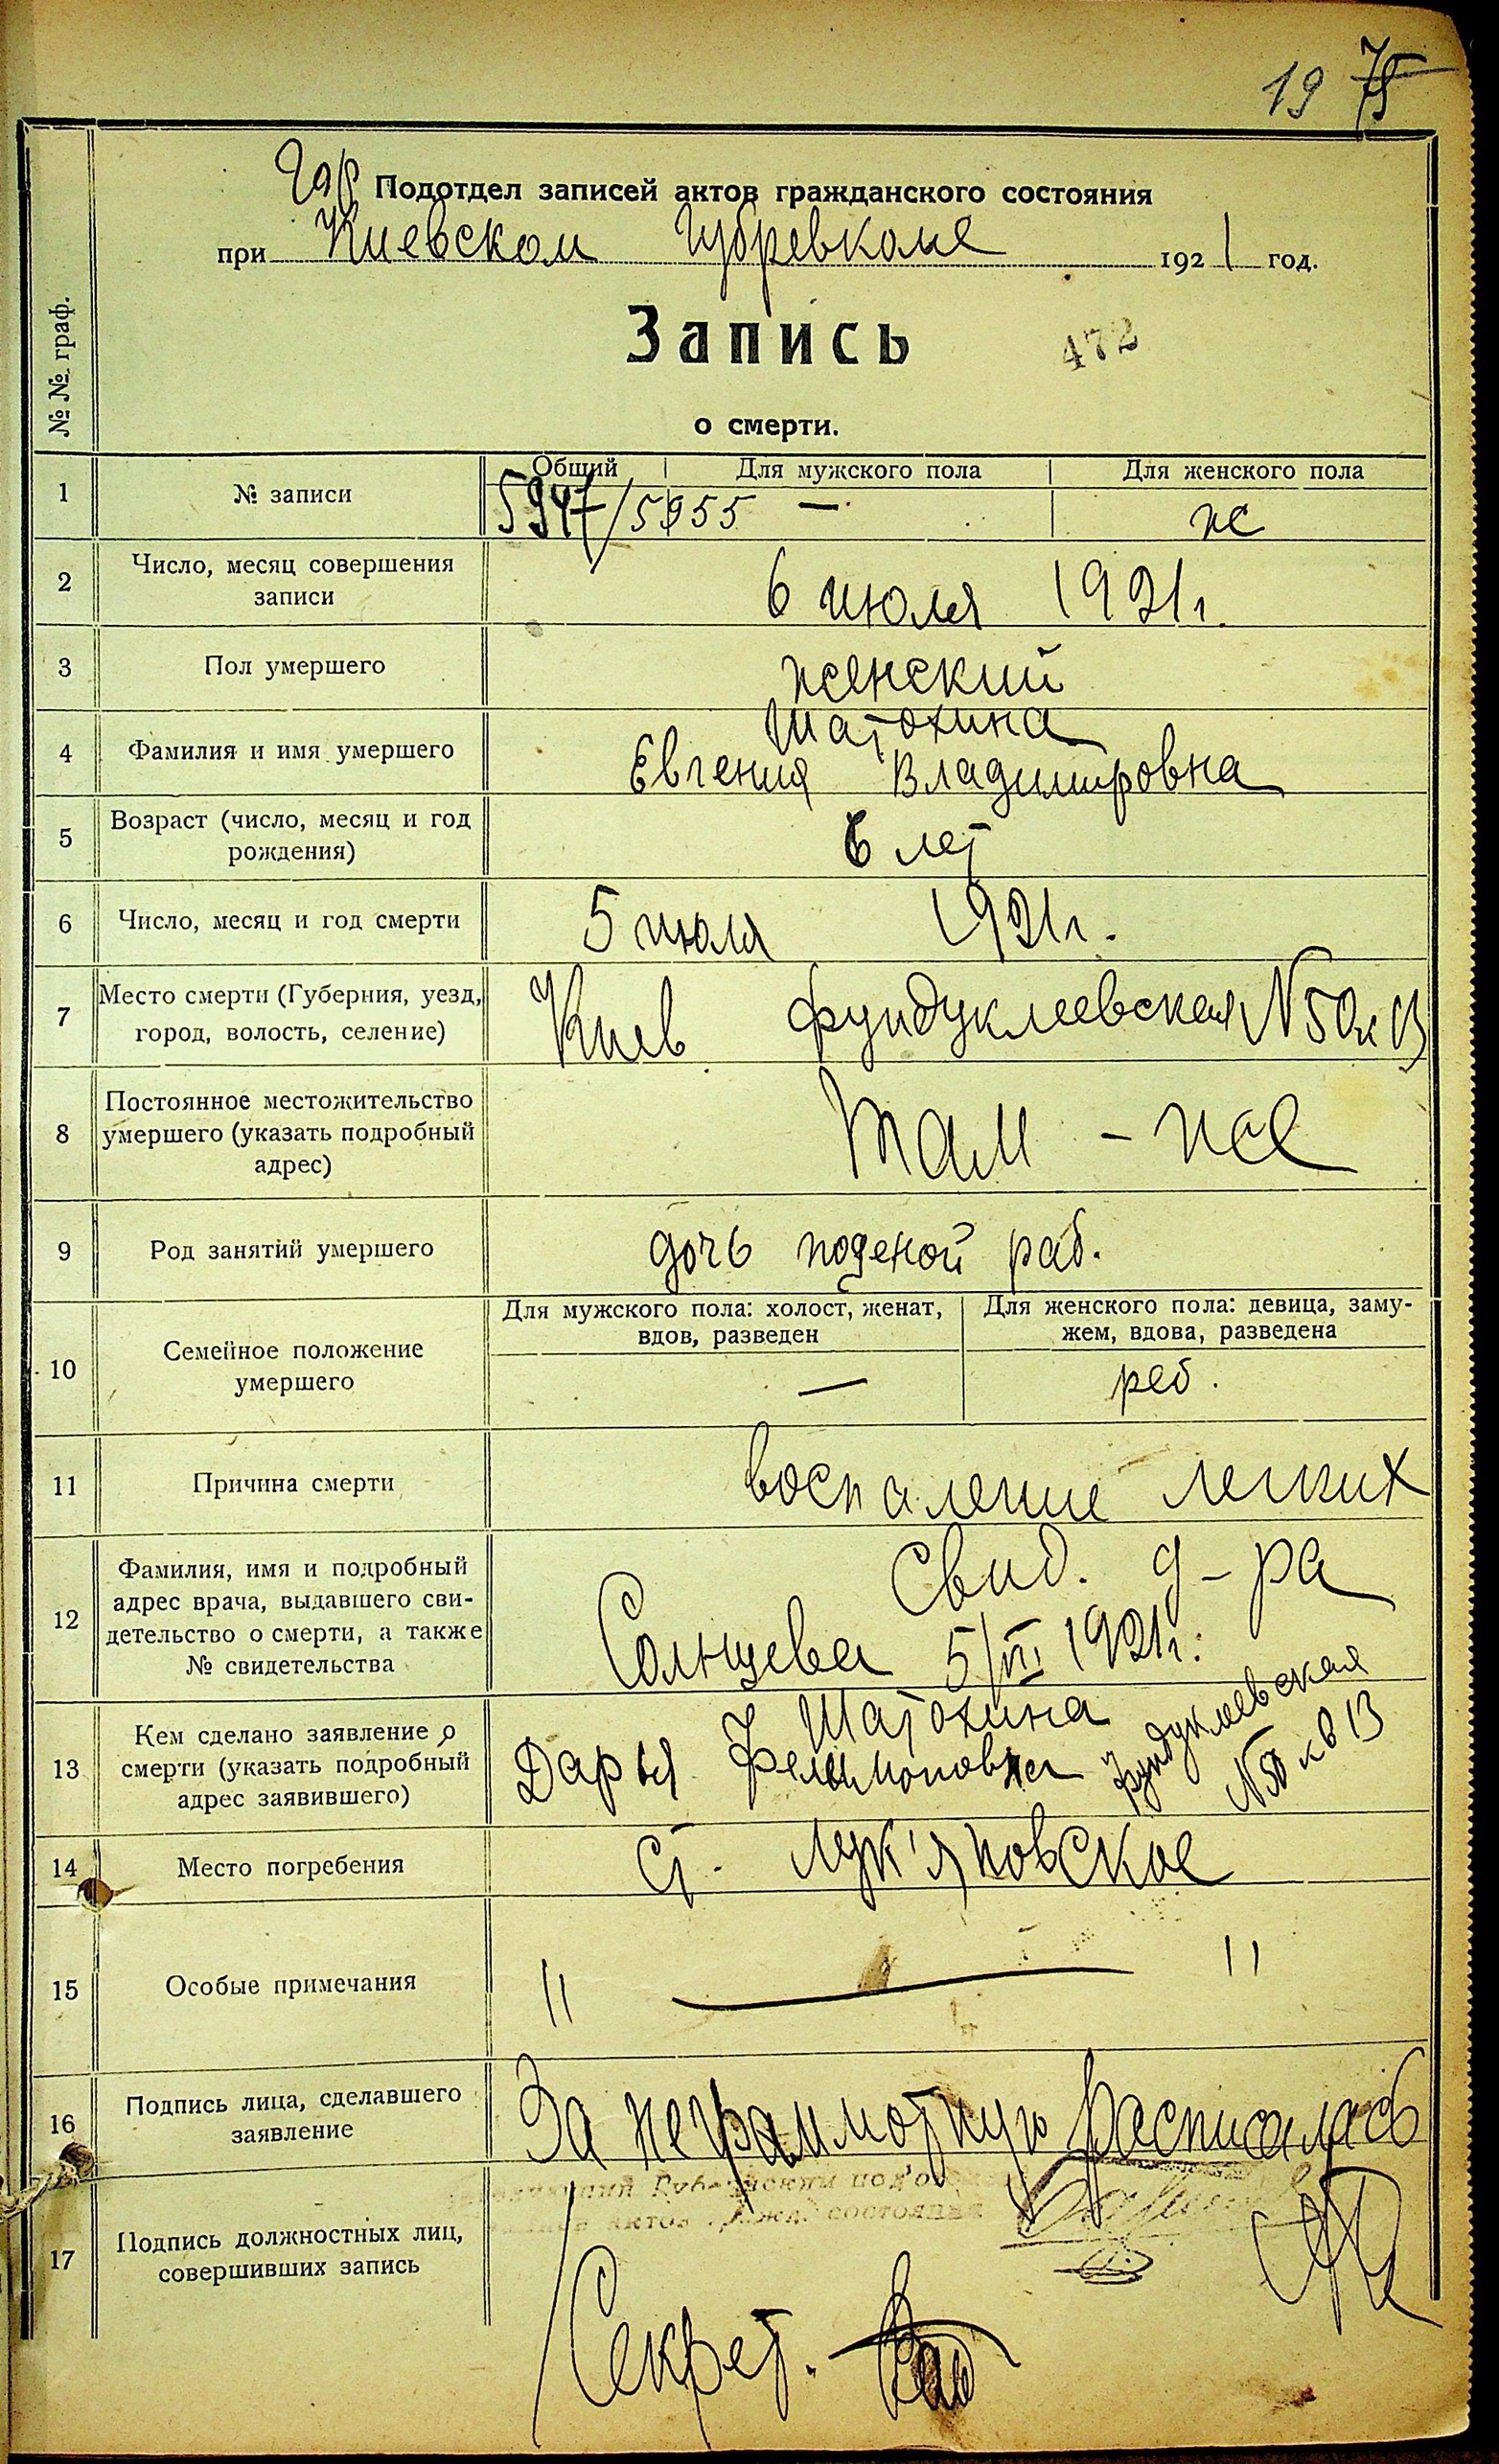 19 75
Гор Подотдел записей актов гражданского состояния
при Киевском Губревкоме 1921 год.
Запись
472
о смерти.
№ № граф.
Общий Для мужского пола Для женского пола
1 № записи 5947/5955 — же
2 Число, месяц совершения
записи
6 июля 1921г.
3 Пол умершего женский
Шатохина
4 Фамилия и имя умершего Евгения Владимировна
5 Возраст (число, месяц и год
рождения)
6 лет
6 Число, месяц и год смерти 5 июля 1921г.
7 Место смерти (Губерния, уезд,
город, волость, селение)
Киев Фундуклеевская N 50 к 13
8 Постоянное местожительство
умершего (указать подробный
адрес)
там - же
9 Род занятий умершего дочь поденой раб.
10 Семейное положение
умершего
Для мужского пола: холост, женат,
вдов, разведен
Для женского пола: девица, заму-
жем, вдова, разведена
— реб.
11 Причина смерти воспаление легких
12 Фамилия, имя и подробный
адрес врача, выдавшего сви-
детельство о смерти, а также
№ свидетельства
Свид. д-ра
Солнцева 5/VII 1921г.
13 Кем сделано заявление о
смерти (указать подробный
адрес заявившего)
Шатохина
Дарья Фелимоновна Фундуклеевская
N 50 кв 13
14 Место погребения ст. Лук'яновское
15 Особые примечания " — "
16 Подпись лица, сделавшего
заявление
За неграммотную расписалась
17 Подпись должностных лиц,
совершивших запись
актов состояния
Секрет.